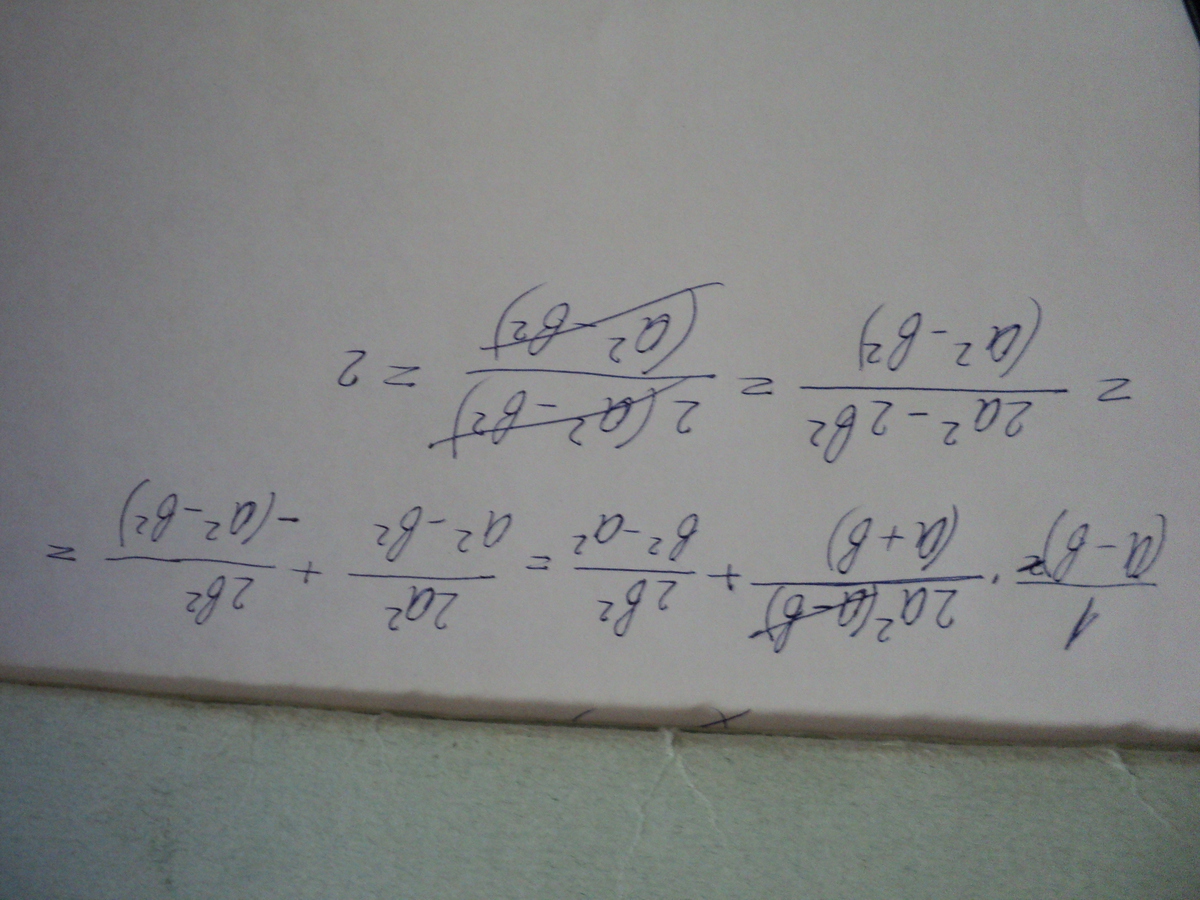 1/(a-b)² · 2a²(a-b)/(a+b) + 2b²/b²-a² = 2a²/a²-b² + 2b²/-(a²-b²) =
= 2a²-2b²/(a²-b²) = 2(a²-b²)/(a²-b²) = 2